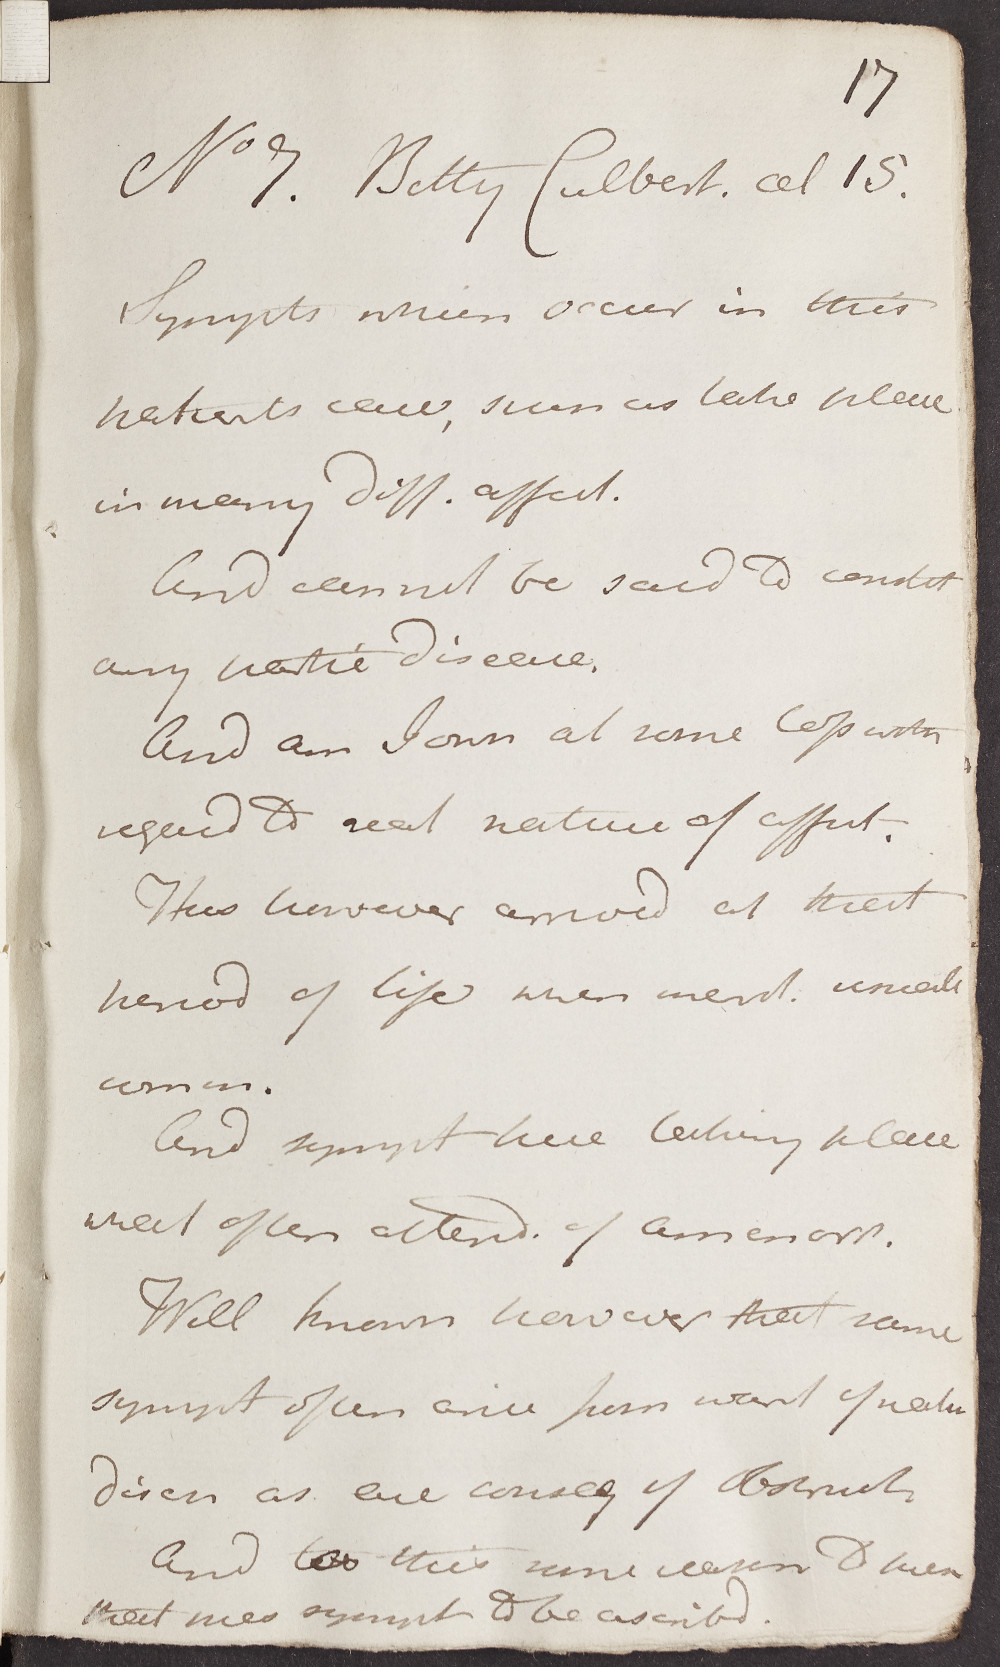 17
No 7. Betty Culbert. aet 15.
Sympts which occur in this
patients case, such as take place
in many Diff. affect.
And cannot be said to constit
any partic Disease.
And am I own at some loss with
regard to real nature of affect.
Has however arrived at that
period of life when menst. usually
comm.
And sympt here taking place
what often attend. of amenorr.
Well known however that same
sympt often arise from want of natu
disch as are conseq of obstruct
And to this some reason to
that sympt to be ascribd.